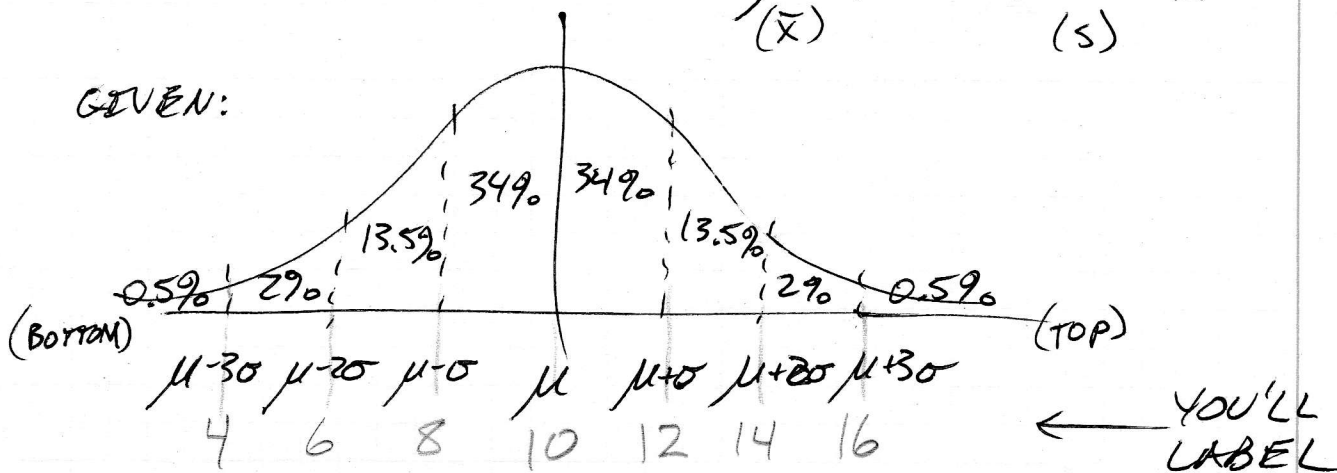 (x̄) (s)
GIVEN:
34% 34%
13.5% 13.5%
0.5% 2% 2% 0.5%
(BOTTOM) (TOP)
μ-3σ μ-2σ μ-σ μ μ+σ μ+2σ μ+3σ
4 6 8 10 12 14 16 ← YOU'LL
LABEL